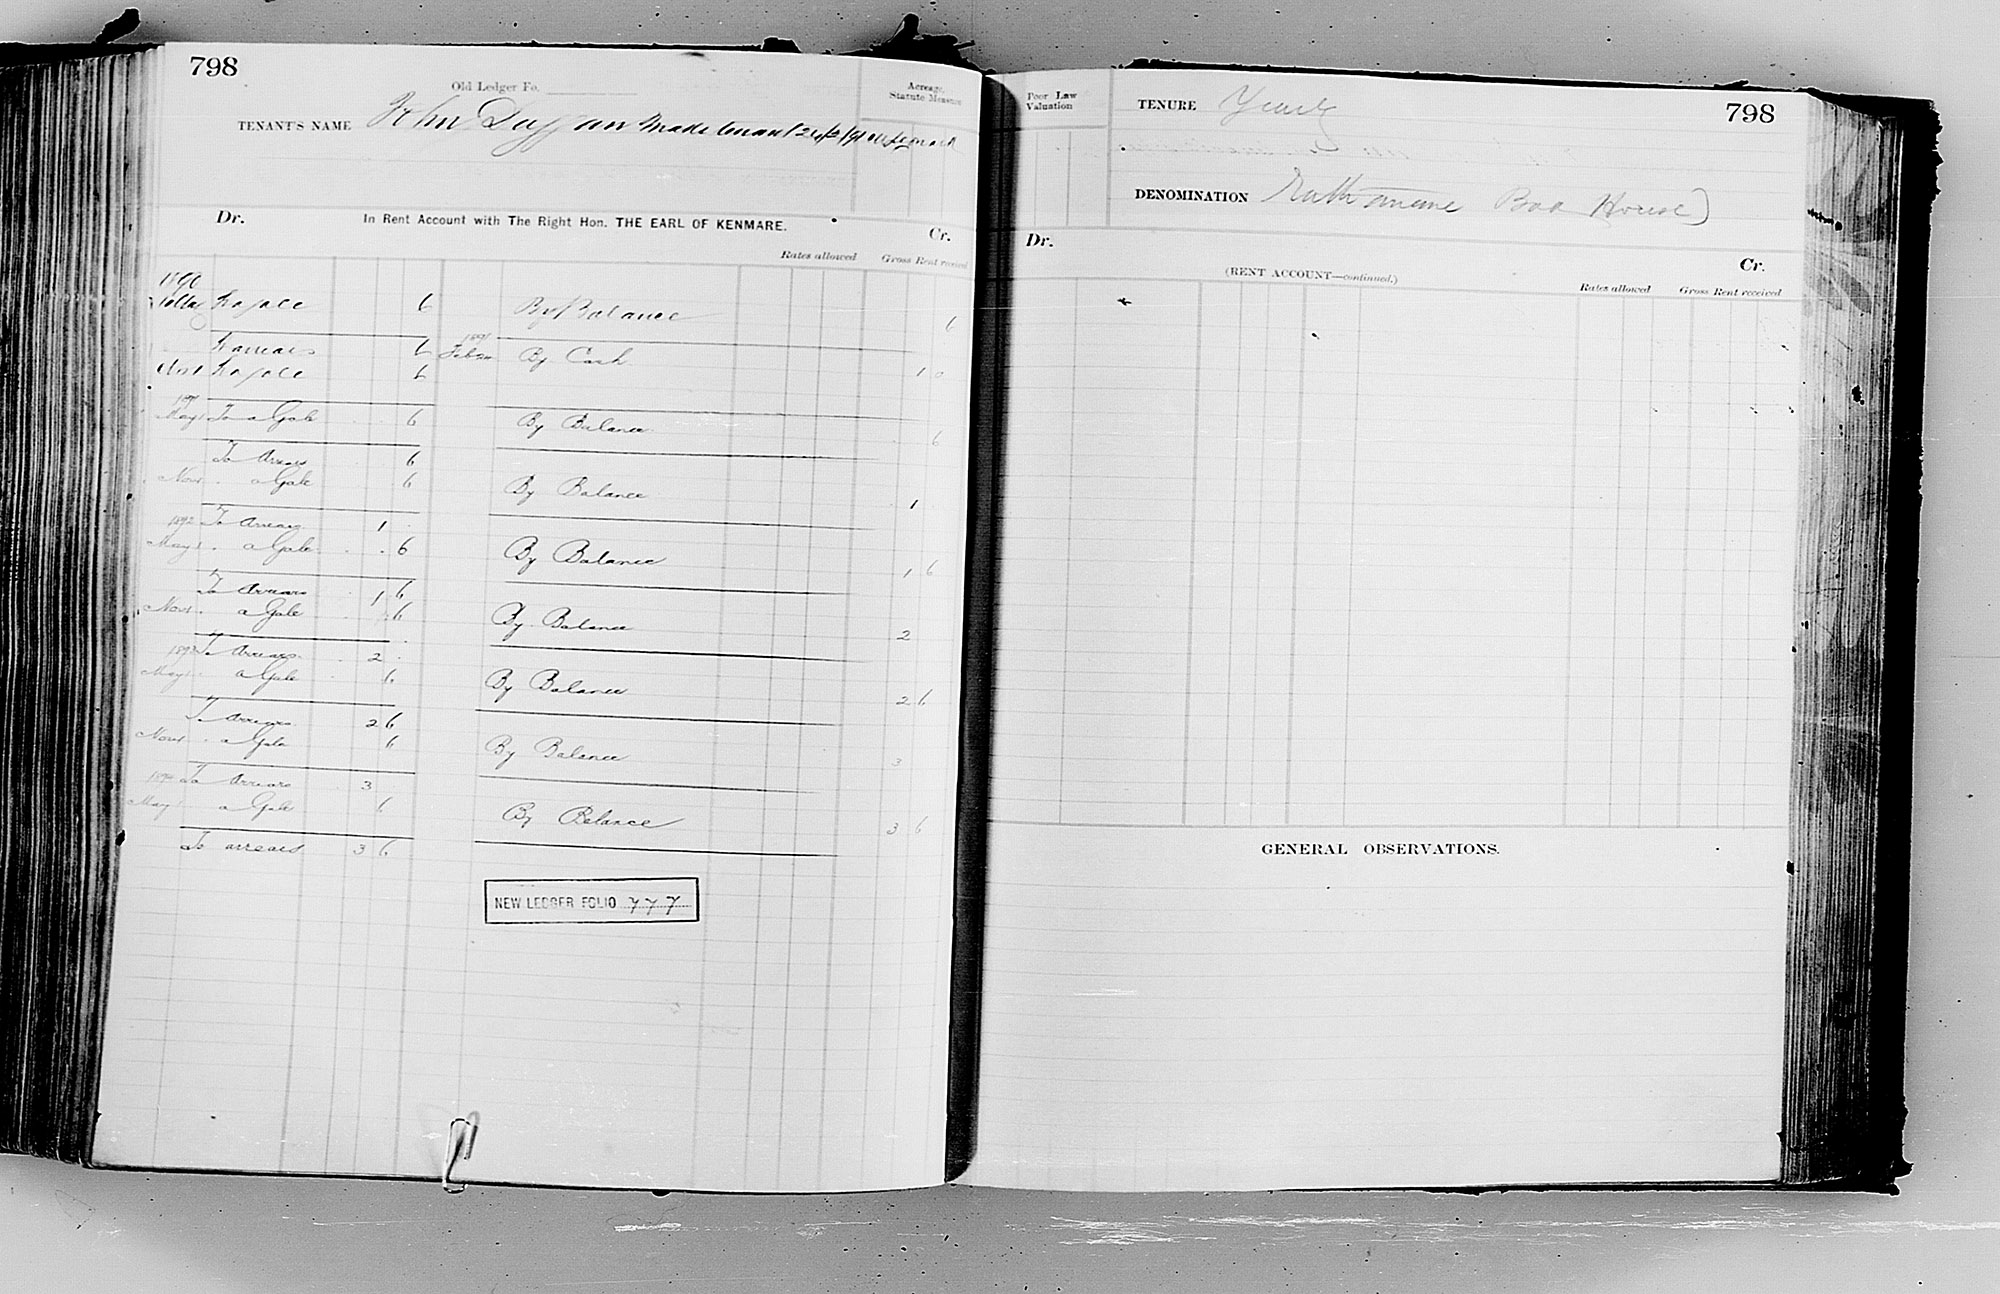 798
Old Ledger Fo.
Acreage, Statute Measure
TENANT'S NAME John Duggan made tenant 24/2/91
Dr. In Rent Account with The Right Hon. THE EARL OF KENMARE. Cr.
Rates allowed Gross Rent received
1890
To a gale 6 By Balance 6
To arrears 6 1891 Feb By Cash 1 0
Nov 1 To a gale 6
1891
May 1 To a Gale 6 By Balance 6
To Arrears 6
Nov 1 " a Gale 6 By Balance 1
1892 To Arrears 1
May 1 " a Gale 6 By Balance 1 6
To Arrears 1 6
Nov 1 " a Gale 6 By Balance 2
1893 To Arrears 2
May 1 a Gale 6 By Balance 2 6
To Arrears 2 6
Nov 1 " a Gale 6 By Balance 3
1894 To Arrears 3
May 1 a Gale 6 By Balance 3 6
To arrears 3 6
NEW LEDGER FOLIO 777
Poor Law Valuation
TENURE Yearly
798
DENOMINATION Rathanane Bog House)
Dr. Cr.
(RENT ACCOUNT—continued.)
Rates allowed Gross Rent received
GENERAL OBSERVATIONS.